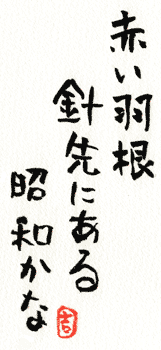 赤い羽根
針先にある
昭和かな
吉